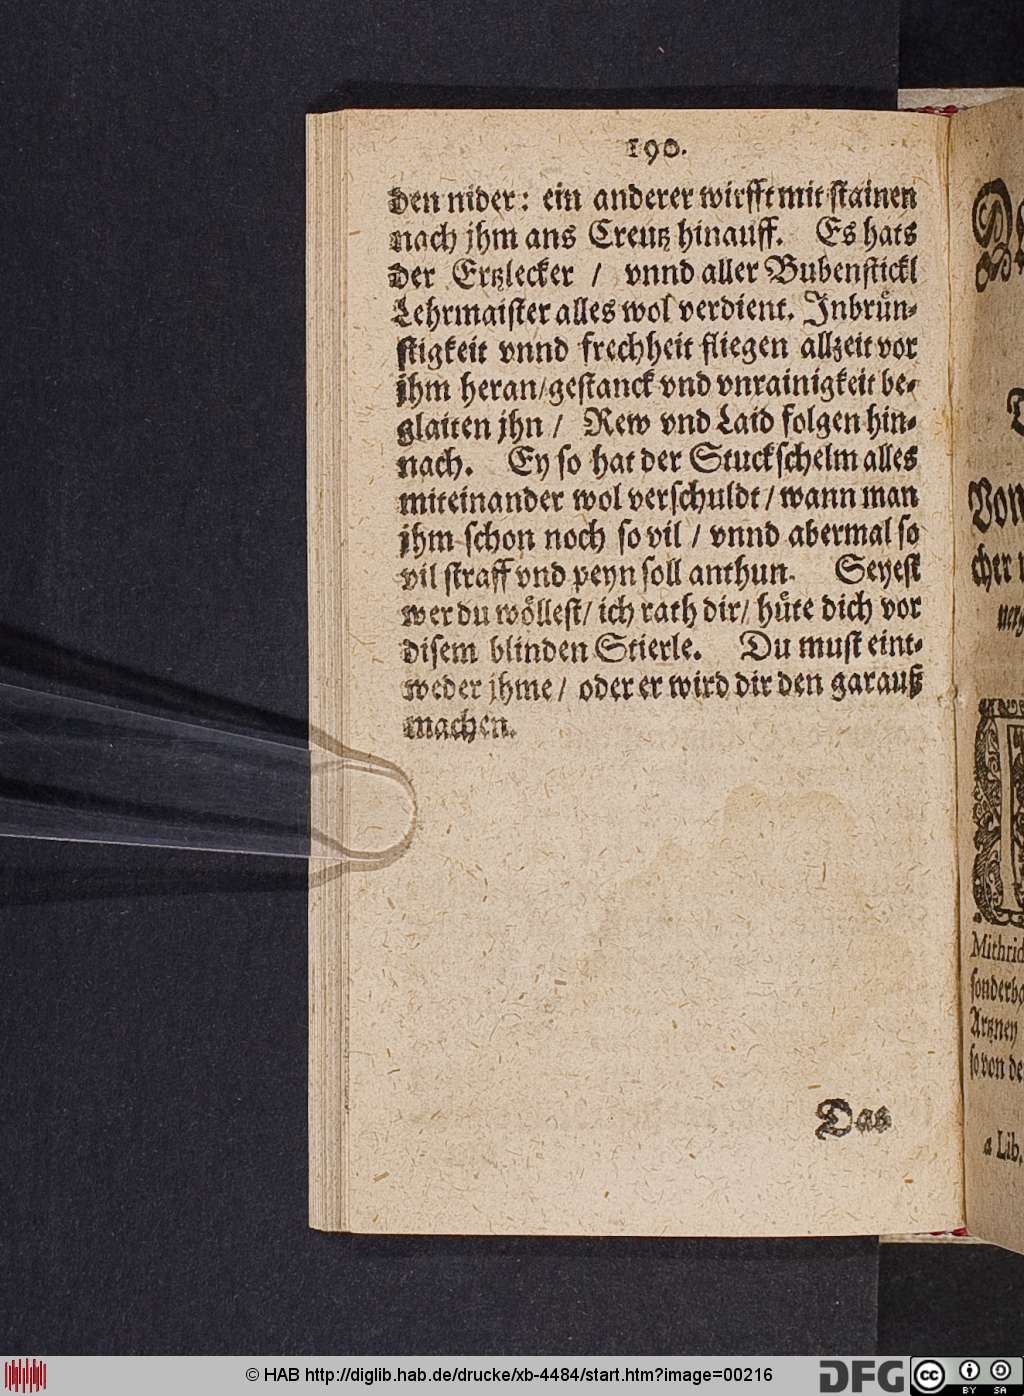 190.
den nider: ein anderer wirfft mit stainen
nach jhm ans Creutz hinauff. Es hats
der Ertzlecker / vnnd aller Bubenstickl
Lehrmaister alles wol verdient. Inbrün-
stigkeit vnnd frechheit fliegen allzeit vor
jhm heran/gestanck vnd vnrainigkeit be-
glaiten jhn / Rew vnd Laid folgen hin-
nach. Ey so hat der Stuckschelm alles
miteinander wol verschuldt / wann man
jhm schon noch so vil / vnnd abermal so
vil straff vnd peyn soll anthun. Seyest
wer du wöllest/ ich rath dir/ hüte dich vor
disem blinden Stierle. Du must eint-
weder jhme / oder er wird dir den garauß
machen.
Das
Von
cher
Mithrid
sonderba
Artzney
so von de
a Lib.
© HAB http://diglib.hab.de/drucke/xb-4484/start.htm?image=00216
DFG
cc
BY SA